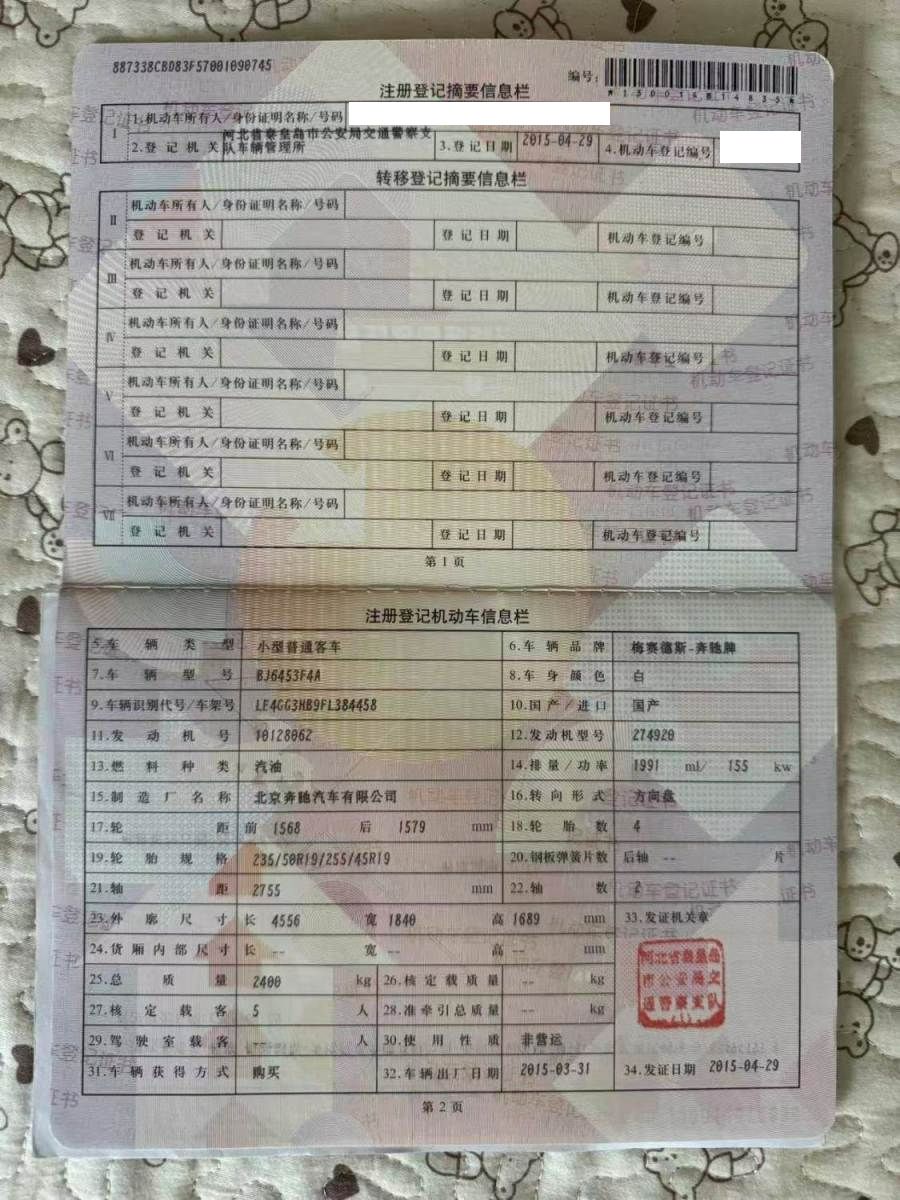 887338CBD83F57001090745
编号:
注册登记摘要信息栏
*130016*14835*
I 1.机动车所有人/身份证明名称/号码
2.登记机关 河北省秦皇岛市公安局交通警察支队车辆管理所 3.登记日期 2015-04-29 4.机动车登记编号
转移登记摘要信息栏
II 机动车所有人/身份证明名称/号码
登记机关 登记日期 机动车登记编号
III 机动车所有人/身份证明名称/号码
登记机关 登记日期 机动车登记编号
IV 机动车所有人/身份证明名称/号码
登记机关 登记日期 机动车登记编号
V 机动车所有人/身份证明名称/号码
登记机关 登记日期 机动车登记编号
VI 机动车所有人/身份证明名称/号码
登记机关 登记日期 机动车登记编号
VII 机动车所有人/身份证明名称/号码
登记机关 登记日期 机动车登记编号
第1页
注册登记机动车信息栏
5.车辆类型 小型普通客车 6.车辆品牌 梅赛德斯-奔驰牌
7.车辆型号 BJ6453F4A 8.车身颜色 白
9.车辆识别代号/车架号 LE4GG3HB9FL384458 10.国产/进口 国产
11.发动机号 10128062 12.发动机型号 274920
13.燃料种类 汽油 14.排量/功率 1991 ml/ 155 kw
15.制造厂名称 北京奔驰汽车有限公司 16.转向形式 方向盘
17.轮距 前 1568 后 1579 mm 18.轮胎数 4
19.轮胎规格 235/50R19/255/45R19 20.钢板弹簧片数 后轴 -- 片
21.轴距 2755 mm 22.轴数 2
23.外廓尺寸 长 4556 宽 1840 高 1689 mm 33.发证机关章
24.货厢内部尺寸 长 -- 宽 -- 高 -- mm
河北省秦皇岛市公安局交通警察支队
25.总质量 2400 kg 26.核定载质量 -- kg
27.核定载客 5 人 28.准牵引总质量 -- kg
29.驾驶室载客 -- 人 30.使用性质 非营运
31.车辆获得方式 购买 32.车辆出厂日期 2015-03-31 34.发证日期 2015-04-29
第2页